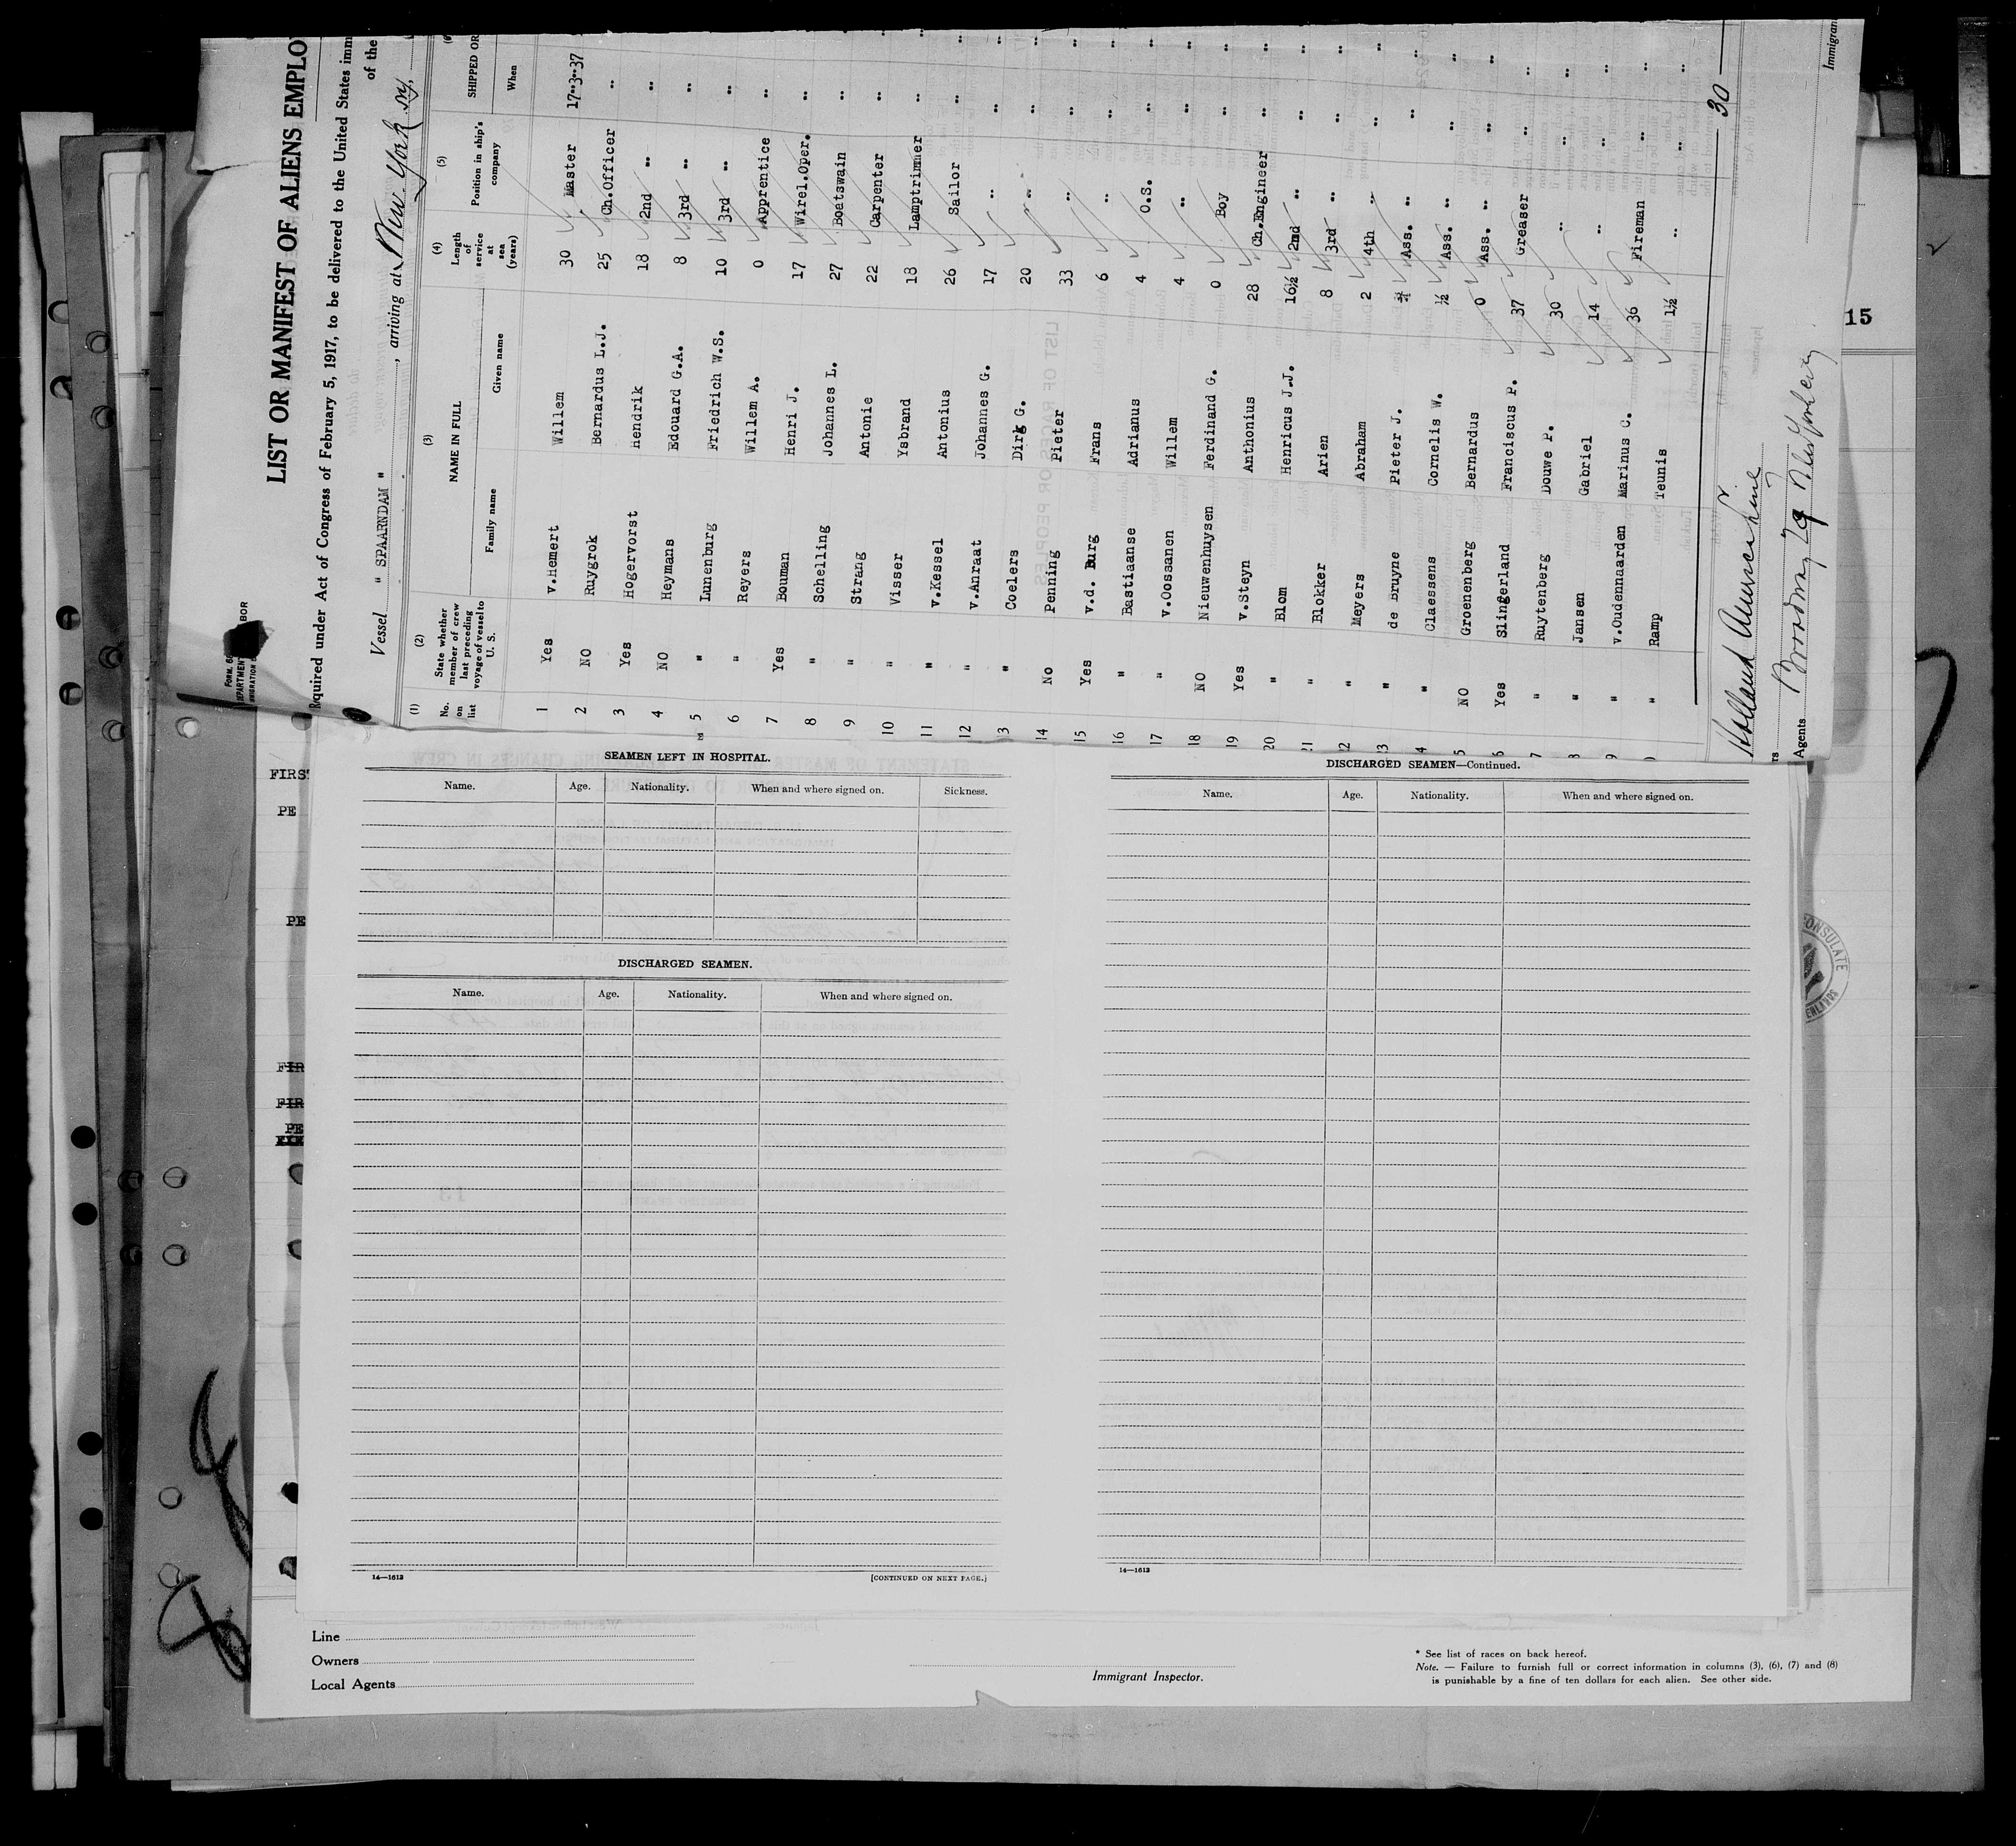 FORM 66
DEPARTMENT
BOR
LIST OR MANIFEST OF ALIENS EMPLO
Required under Act of Congress of February 5, 1917, to be delivered to the United States imm
of the
Vessel " SPAARNDAM " , arriving at New York
(1) (2) (3) (4) (5) (6)
No. on list State whether member of crew last preceding voyage of vessel to U. S. NAME IN FULL Length of service at sea (years) Position in ship's company SHIPPED OR
Family name Given name When
1 Yes v.Hemert Willem 30 Master 17"3"37
2 NO Ruygrok Bernardus L.J. 25 Ch.Officer "
3 Yes Hogervorst Hendrik 18 2nd " "
4 NO Heymans Edouard G.A. 8 3rd " "
5 " Lunenburg Friedrich W.S. 10 3rd " "
6 " Reyers Willem A. 0 Apprentice "
7 Yes Bouman Henri J. 17 Wirel.Oper. "
8 " Schelling Johannes L. 27 Boatswain "
9 " Strang Antonie 22 Carpenter "
10 " Visser Ysbrand 18 Lamptrimmer "
11 " v.Kessel Antonius 26 Sailor "
12 " v.Anraat Johannes G. 17 " "
3 " Coelers Dirk G. 20 " "
14 No Penning Pieter 33 " "
15 Yes v.d. Burg Frans 6 " "
16 " Bastiaanse Adrianus 4 O.S. "
17 " v.Oossanen Willem 4 " "
18 NO Nieuwenhuysen Ferdinand G. 0 Boy "
19 Yes v.Steyn Anthonius 28 Ch.Engineer "
20 " Blom Henricus J.J. 16½ 2nd " "
21 " Blokker Arien 8 3rd " "
22 " Meyers Abraham 2 4th " "
23 " de Bruyne Pieter J. Ass. " "
4 " Claessens Cornelis W. ½ Ass. " "
5 NO Groenenberg Bernardus 0 Ass. " "
6 Yes Slingerland Franciscus P. 37 Greaser "
7 " Ruytenberg Douwe P. 30 " "
8 " Jansen Gabriel 14 " "
9 " v.Oudennaarden Marinus C. 36 Fireman "
" Ramp Teunis 1½ " "
30
Holland America Line
rs
Agents Broadway 29 New York City
Immigran
15
FIRST
PE
PE
FIR
FIR
PE
SEAMEN LEFT IN HOSPITAL.
Name. Age. Nationality. When and where signed on. Sickness.
DISCHARGED SEAMEN.
Name. Age. Nationality. When and where signed on.
14—1613 [CONTINUED ON NEXT PAGE.]
DISCHARGED SEAMEN—Continued.
Name. Age. Nationality. When and where signed on.
14—1613
CONSULATE
Line
Owners
Local Agents
Immigrant Inspector.
* See list of races on back hereof.
Note. — Failure to furnish full or correct information in columns (3), (6), (7) and (8)
is punishable by a fine of ten dollars for each alien. See other side.